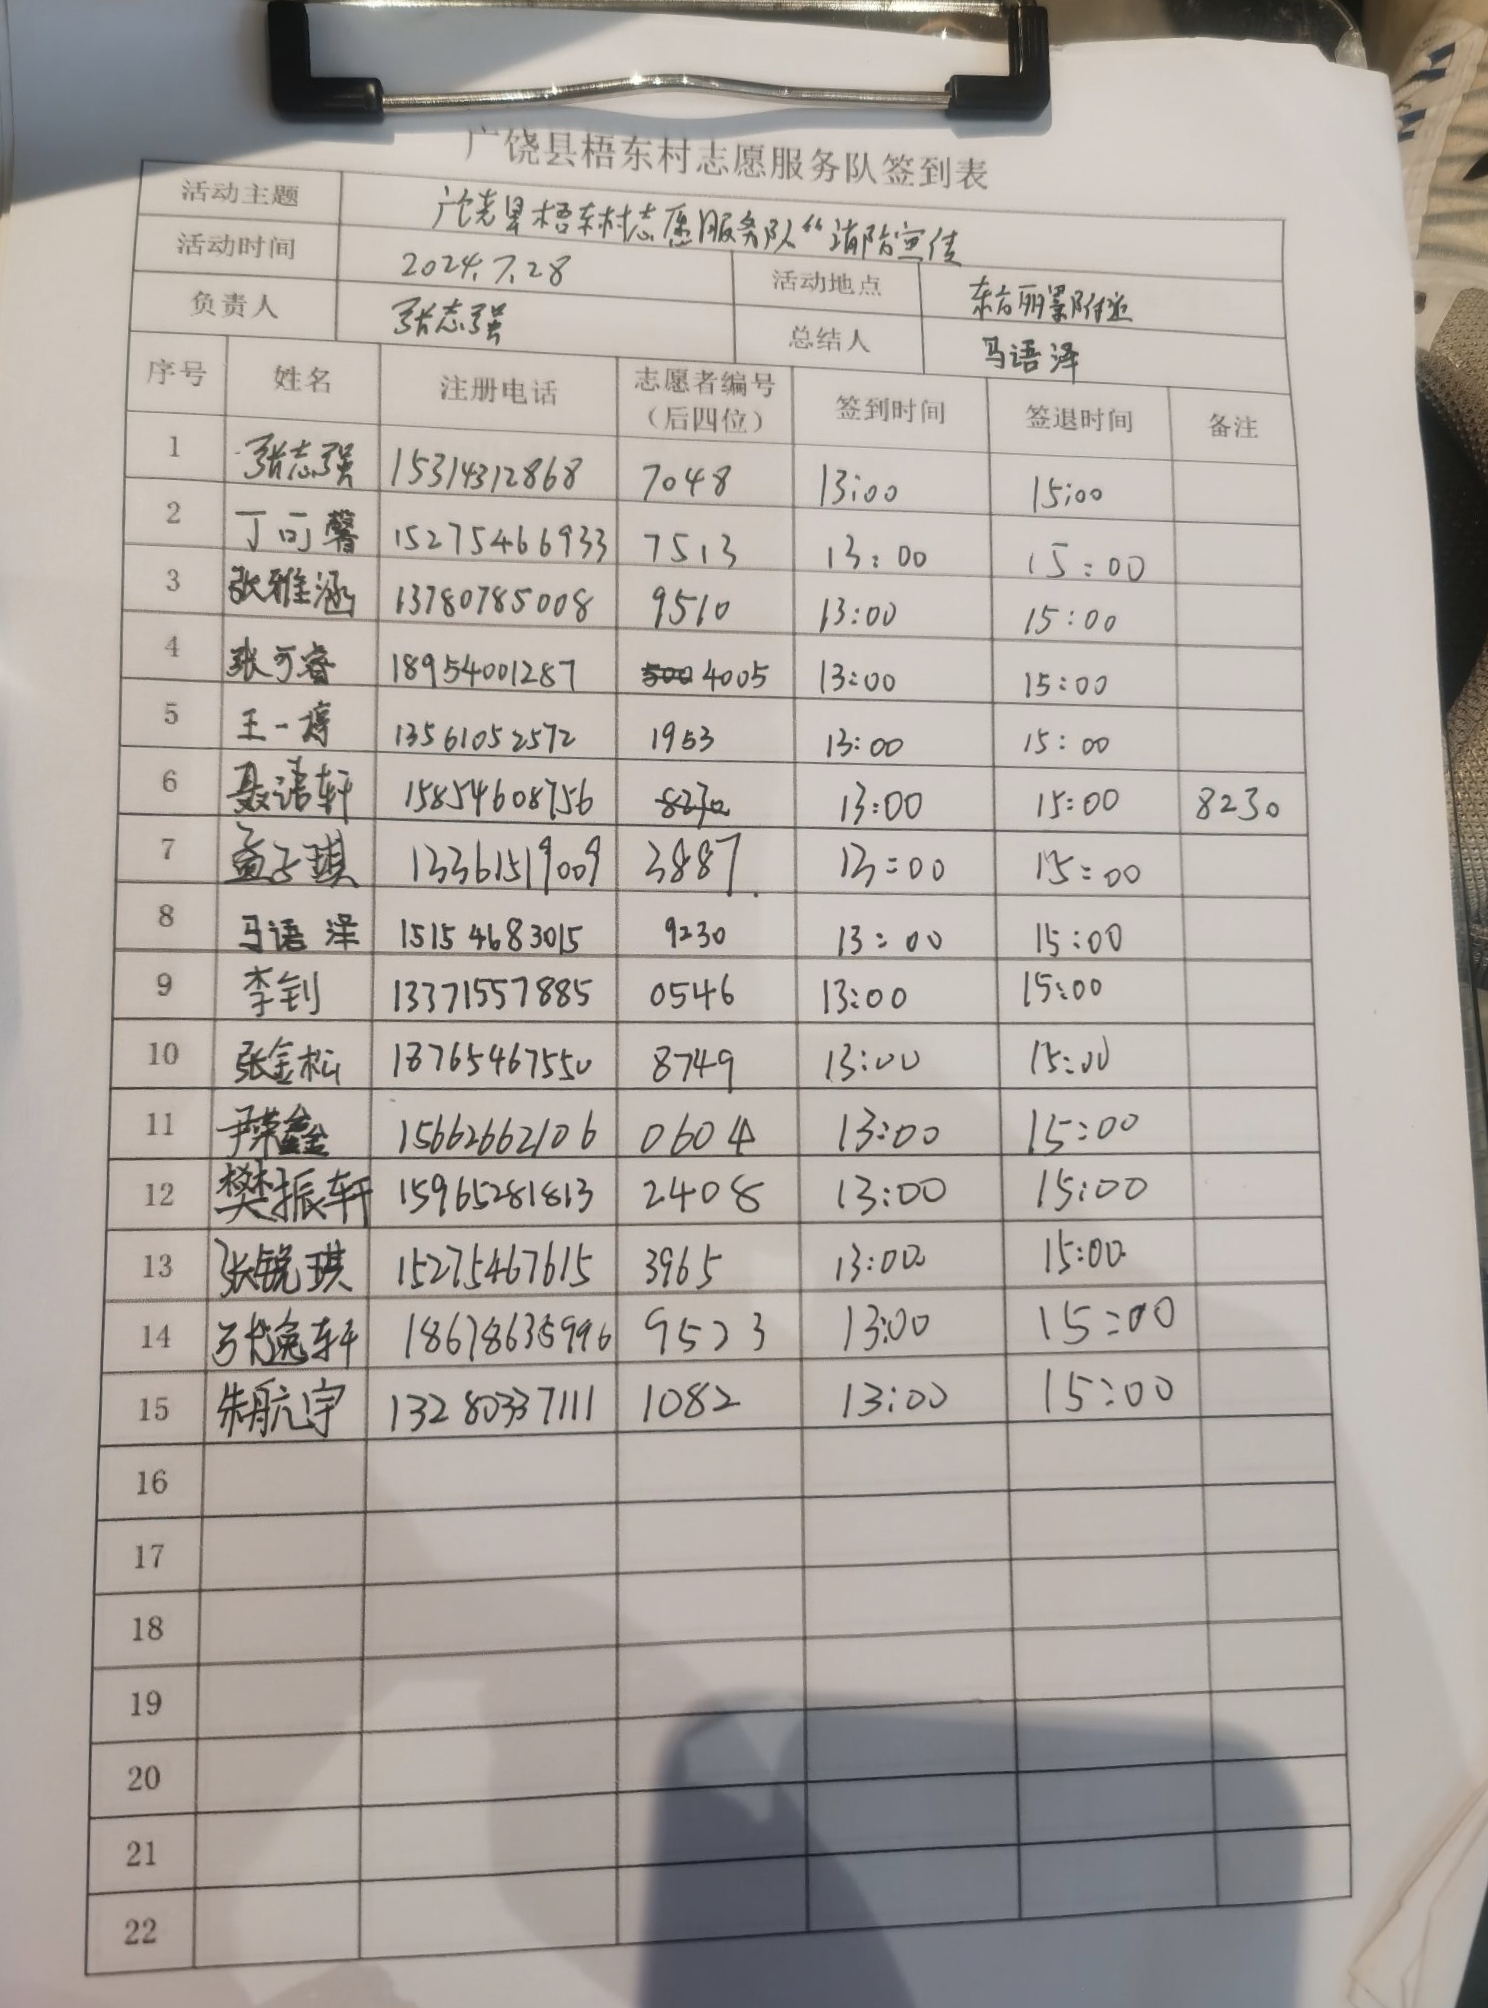 广饶县梧东村志愿服务队签到表
活动主题 广饶县梧东村志愿服务队“消防宣传
活动时间 2024.7.28 活动地点 东方丽景附近
负责人 张志强 总结人 马语泽
序号 姓名 注册电话 志愿者编号（后四位） 签到时间 签退时间 备注
1 张志强 15314312868 7048 13:00 15:00
2 丁可馨 15275466933 7513 13:00 15:00
3 张雅涵 13780785008 9510 13:00 15:00
4 张可睿 18954001287 4005 13:00 15:00
5 王一婷 13561052572 1953 13:00 15:00
6 聂靖轩 15854608756 8230 13:00 15:00 8230
7 孟子琪 13361519009 3887 13:00 15:00
8 马语泽 15154683015 9230 13:00 15:00
9 李钊 13371557885 0546 13:00 15:00
10 张金松 18765467550 8749 13:00 15:00
11 尹荣鑫 15662662106 0604 13:00 15:00
12 樊振轩 15965281813 2408 13:00 15:00
13 张锐琪 15275467615 3965 13:00 15:00
14 轩 18678635996 9523 13:00 15:00
15 朱航宇 13280337111 1082 13:00 15:00
16
17
18
19
20
21
22